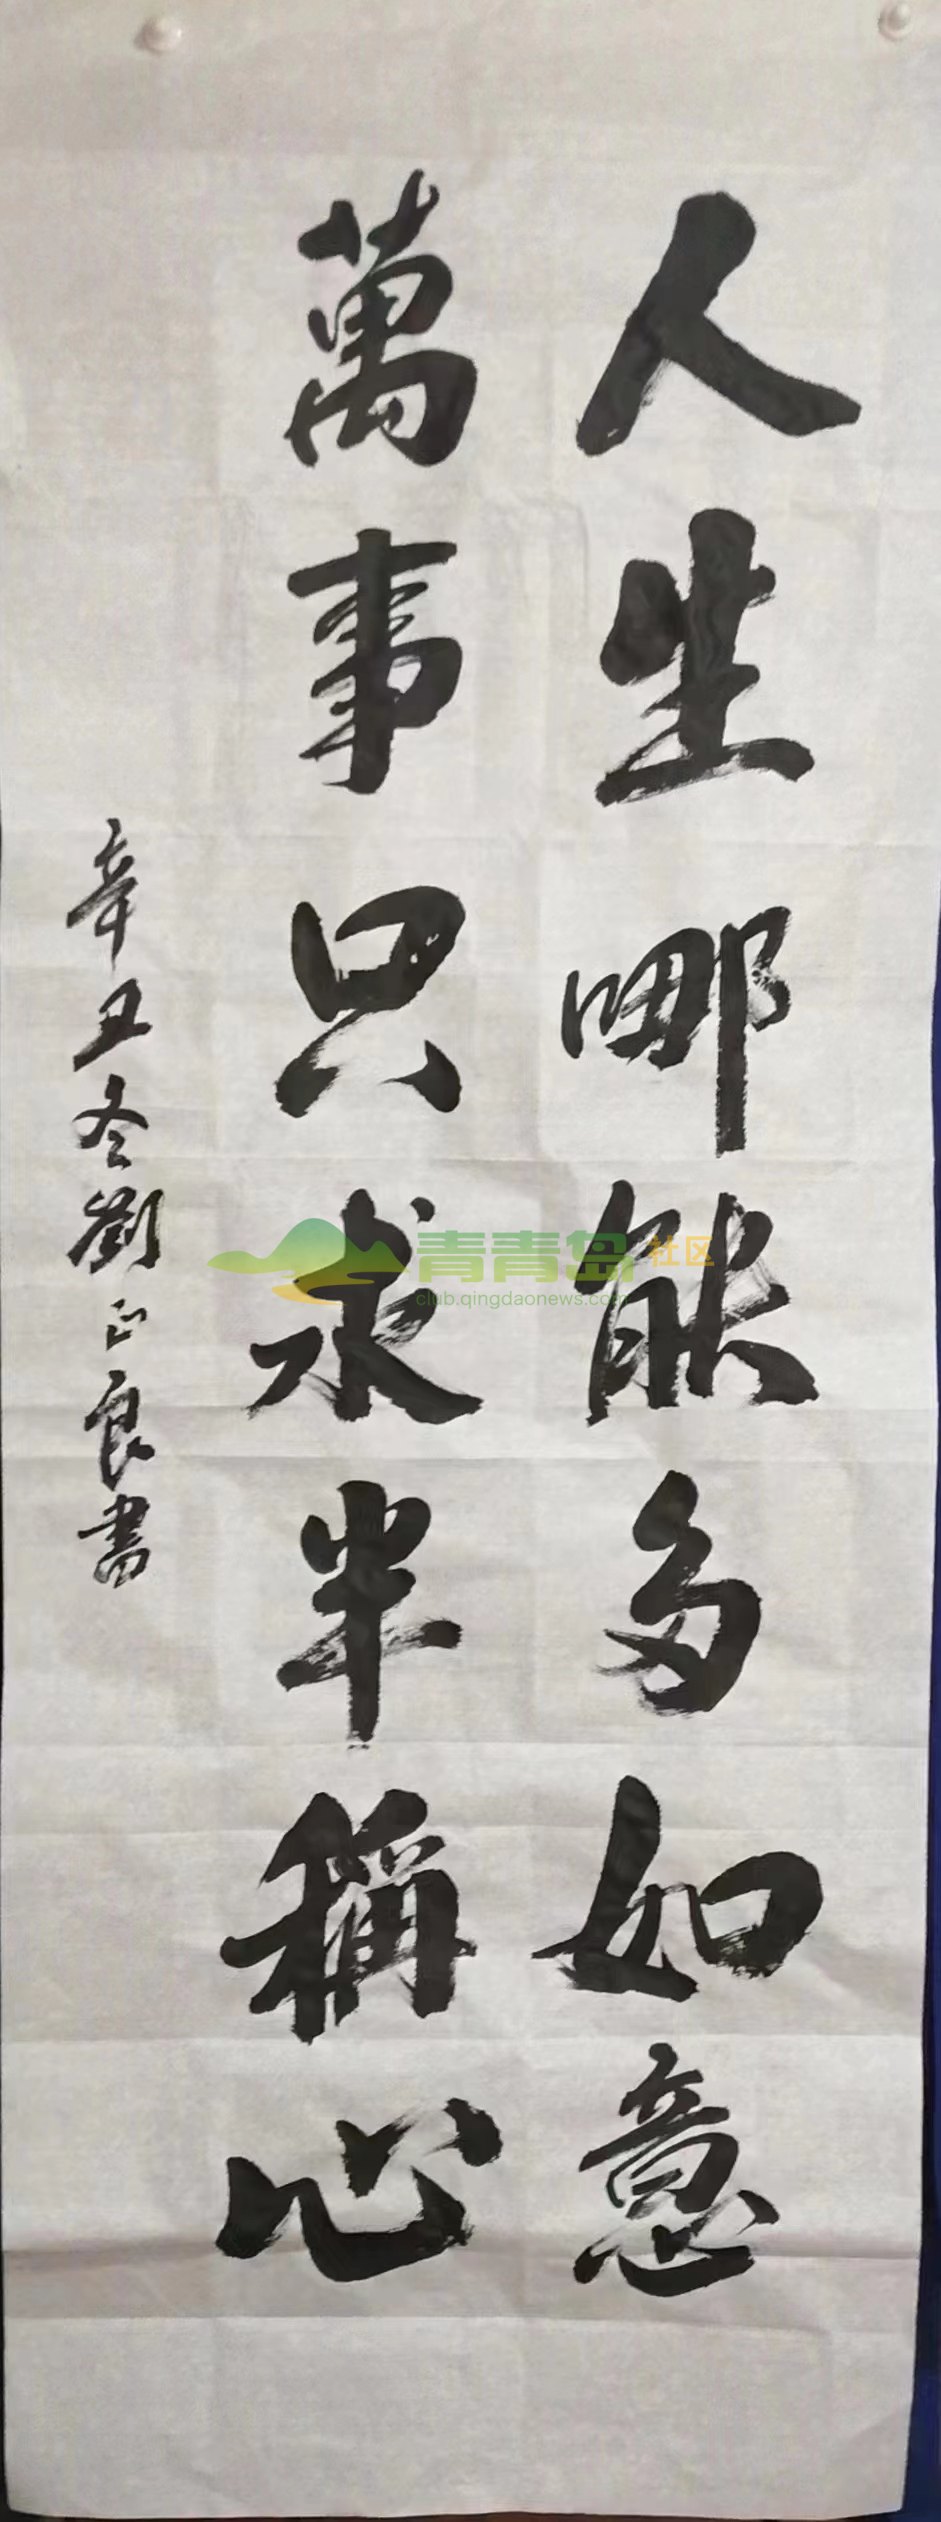 人生哪能多如意
萬事只求半稱心
辛丑冬劉正良書
青青岛社区
club.qingdaonews.com